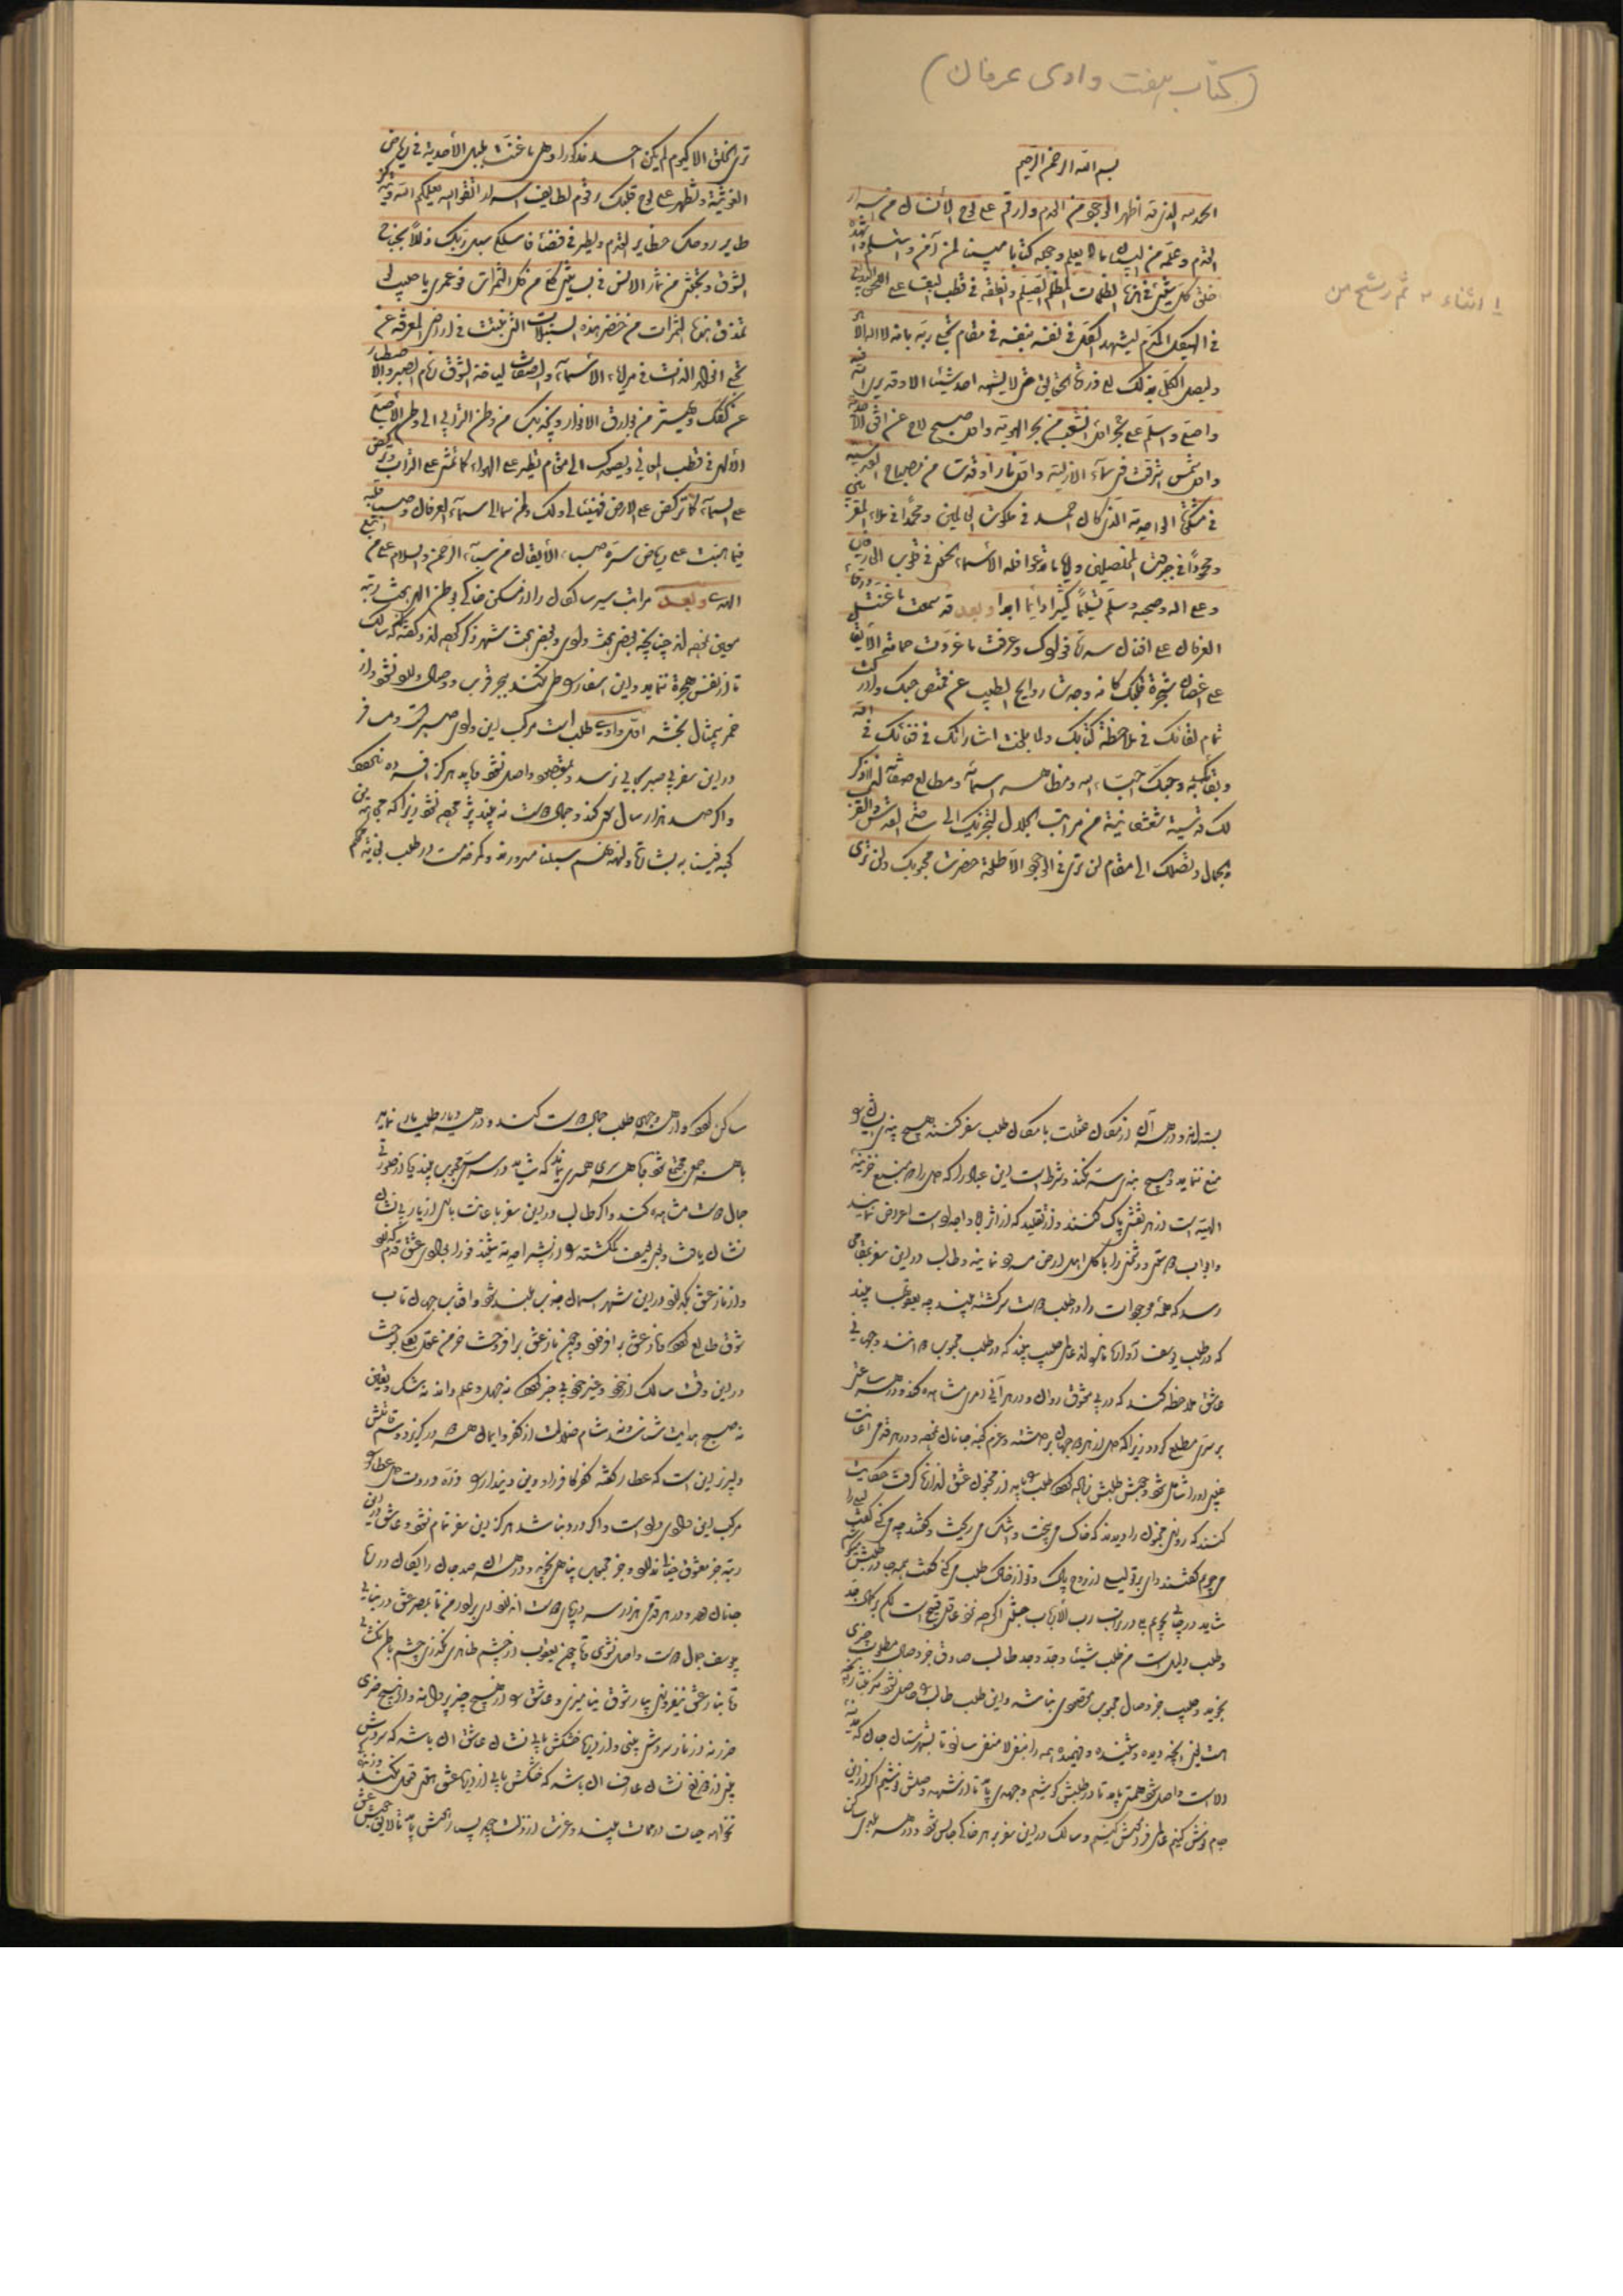 (کتاب هفت وادی عرفان)
بسم الله الرحمن الرحیم
الحمد لله الذی قد اظهر الوجود من العدم و ارقم علی لوح الانسان من اسرار
القدم و علمه من البیان ما لا یعلم و جعله کتابا مبینا لمن آمن و استسلم و اشهده
خلق کل شیئ فی هذا الظلمات المظلم الصیلم و انطقه فی قطب البقاء علی اللحن البدیع
فی الهیکل المکرم لیشهد الکل فی نفسه بنفسه فی مقام تجلی ربه بانه لا اله الا هو
و لیصل الکل بذلک الی ذروة الحقایق حتی لا یشهد احد شیئا الا و قد یری الله فیه
و اصلی و اسلم علی اول بحر تشعب من بحر الهویة و اول صبح لاح عن افق الاحدیة
و اول شمس اشرقت فی سماء الازلیة و اول نار اوقدت من مصباح القدمیة
فی مشکوة الواحدیة الذی کان احمد فی ملکوت العالین و محمدا فی ملاء المقربین
و محمودا فی جبروت المخلصین و ایا ما تدعوا فله الاسماء الحسنی فی قلوب العارفین
و علی آله و صحبه و سلم تسلیما کثیرا دائما ابدا و بعد قد سمعت ما غنت ورقاء
العرفان علی افنان سدرة فؤادک و عرفت ما غردت حمامة الایقان
علی اغصان شجرة قلبک کانی وجدت روایح الطیب عن قمیص حبک و ادرکت
تمام لقائک فی ملاحظة کتابک و لما بلغت اشاراتک فی فنائک فی الله
و بقائک به و حبک احباء الله و مظاهر اسمائه و مطالع صفاته لذا اذکر
لک قدسیة شعشعانیة من مراتب الجلال لتجذبک الی ساحة القدس و القرب
و الجمال و تصلک الی مقام لن تری فی الوجود الا طلعة حضرت محبوبک و لن تری
۱ انشاء به ثم رشح من
تری الخلق الا کیوم لم یکن احد مذکورا و هی ما غنت بلبل الاحدیة فی ریاض
الغوثیة و تظهر علی لوح قلبک رقوم لطایف اسرار اتقوا الله یعلمکم الله و یتذکر
طایر روحک حظایر القدم و یطیر فی فضاء فاسلکی سبل ربک ذللا بجناح
الشوق و تجتنی من ثمار الانس فی بساتین کلی من کل الثمرات فو عمری یا حبیبی لو
تذق هذه الثمرات من خضر هذه السنبلات التی نبتت فی اراضی المعرفة عند
تجلی انوار الذات فی مرایاء الاسماء و الصفات لیأخذ الشوق زمام الصبر و الاصطبار
عن کفک و یهتز من بوارق الانوار و یجذبک من وطن الترابی الی وطن الاصلی
الالهی فی قطب المعانی و یصعدک الی مقام تطیر علی الهواء کما تمشی علی التراب و ترکض
علی السماء کما ترکض علی الارض فهنیئا لی و لک و لمن سما الی سماء العرفان و صبا قلبه
فیما هبت علی ریاض سره صباء الایقان من سباء الرحمن و السلام علی من اتبع
الهدی و بعد مراتب سیر سالکان را از مسکن خاکی بوطن الهی هفت رتبه
معین نموده‌اند چنانچه بعضی هفت وادی و بعضی هفت شهر ذکر کرده‌اند و گفته‌اند که سالک
تا از نفس هجرة ننماید و این اسفار را طی نکند ببحر قرب و وصال وارد نشود و از
خمر بیمثال نچشد اول وادی طلب است مرکب این وادی صبر است و مسافر
در این سفر بی صبر بجایی نرسد و بمقصود واصل نشود باید هرگز افسرده نگردد
و اگر صد هزار سال سعی کند و جمال دوست نبیند پژمرده نشود زیرا که مجاهدین
کعبه فینا به بشارت لنهدینهم سبلنا مسرورند و کمر خدمت در طلب بغایت محکم
بسته‌اند و در هر آن از مکان غفلت بامکان طلب سفر کنند هیچ بندی ایشان را
منع ننماید و هیچ پندی سد نکند و شرط است این عباد را که دل را که منبع خزینه
الهیه است از هر نقشی پاک کنند و از تقلید که از اثر آباء و اجداد است اعراض نمایند
و ابواب دوستی و دشمنی را با کل اهل ارض مسدود نمایند و طالب در این سفر بمقامی
رسد که همهٔ موجودات را در طلب دوست سرگشته بیند چه یعقوبها بیند
که در طلب یوسف آواره مانده‌اند عالمی حبیب بیند که در طلب محبوب دوانند و جهانی
عاشق ملاحظه کند که در پی معشوق روان و در هر آنی امری مشاهده کند و در هر ساعتی
بر سری مطلع گردد زیرا که دل از هر دو جهان برداشته و عزم کعبه جانان نموده و در هر قدمی اعانت
غیبی او را شامل شود و جوش طلبش زیاده گردد طلب را باید از مجنون عشق اندازه گرفت حکایت
کنند که روزی مجنون را دیدند که خاک می‌بیخت و اشک می‌ریخت گفتند چه می‌کنی گفت لیلی را
می‌جویم گفتند وای بر تو لیلی از روح پاک و تو از خاک طلب می‌کنی گفت همه جا در طلبش می‌کوشم
شاید در جائی بجویم بلی در تراب رب الارباب جستن اگرچه نزد عاقل قبیح است لکن بر کمال جد
و طلب دلیل است من طلب شیئا و جد وجد طالب صادق جز وصال مطلوب چیزی
نجوید و حبیب جز وصال محبوب مقصودی نباشد و این طلب طالب را حاصل نشود مگر بنثار آنچه
هست یعنی آنچه دیده و شنیده و فهمیده همه را بنفی لا منفی سازد تا بشهرستان جان که مدینه
الا است واصل شود همتی باید تا در طلبش کوشیم و جهدی باید تا از شهد وصلش نوشیم اگر از این
جام نوش کنیم عالمی فراموش کنیم و سالک در این سفر بر هر خاکی جالس شود و در هر بلادی ساکن
ساکن گردد و از هر وجهی طلب جمال دوست کند و در هر دیار طلب یار نماید
با هر جمعی مجتمع شود و با هر سری همسری نماید که شاید در سری سر محبوب بیند یا از صورتی
جمال دوست مشاهده کند و اگر طالب در این سفر باعانت باری از یار بی نشان
نشان یافت و بوی یوسف گم‌گشته را از بشیر احدیه شنید فورا بوادی عشق قدم گذارد
و از نار عشق بگدازد در این شهر آسمان جذب بلند شود و آفتاب جهان تاب
شوق طالع گردد و نار عشق برافروزد و چون نار عشق برافروخت خرمن عقل بکلی بسوخت
در این وقت سالک از خود و غیر خود بی خبر گردد نه جهل و علم داند نه شک و یقین
نه صبح هدایت شناسد نه شام ضلالت از کفر و ایمان هر دو در گریز و سم قاتلش
دلپذیر این است که عطار گفته کفر کافر را و دین دیندار را ذرهٔ دردت دل عطار را
مرکب این وادی درد است و اگر درد نباشد هرگز این سفر تمام نشود و عاشق در این
رتبه جز معشوق خیالی ندارد و جز محبوب پناهی نجوید و در هر آن صد جان رایگان در ره
جانان دهد و در هر قدمی هزار سر در پای دوست اندازد ای برادر من تا بمصر عشق درنیائی
بیوسف جمال دوست واصل نشوی و تا چون یعقوب از چشم ظاهری نگذری چشم باطن نگشائی
و تا بنار عشق نیفروزی بیار شوق نیامیزی و عاشق را از هیچ چیز پروا نیست و از هیچ ضری
ضرر نه از نار سردش بینی و از دریا خشکش یابی نشان عاشق آن باشد که سردش
بینی از دوزخ نشان عارف آن باشد که خشکش یابی از دریا عشق هستی قبول نکند و زندگی
نخواهد حیات در ممات بیند و عزت از ذلت جوید بسیار هوش باید تا لایق جوش عشق